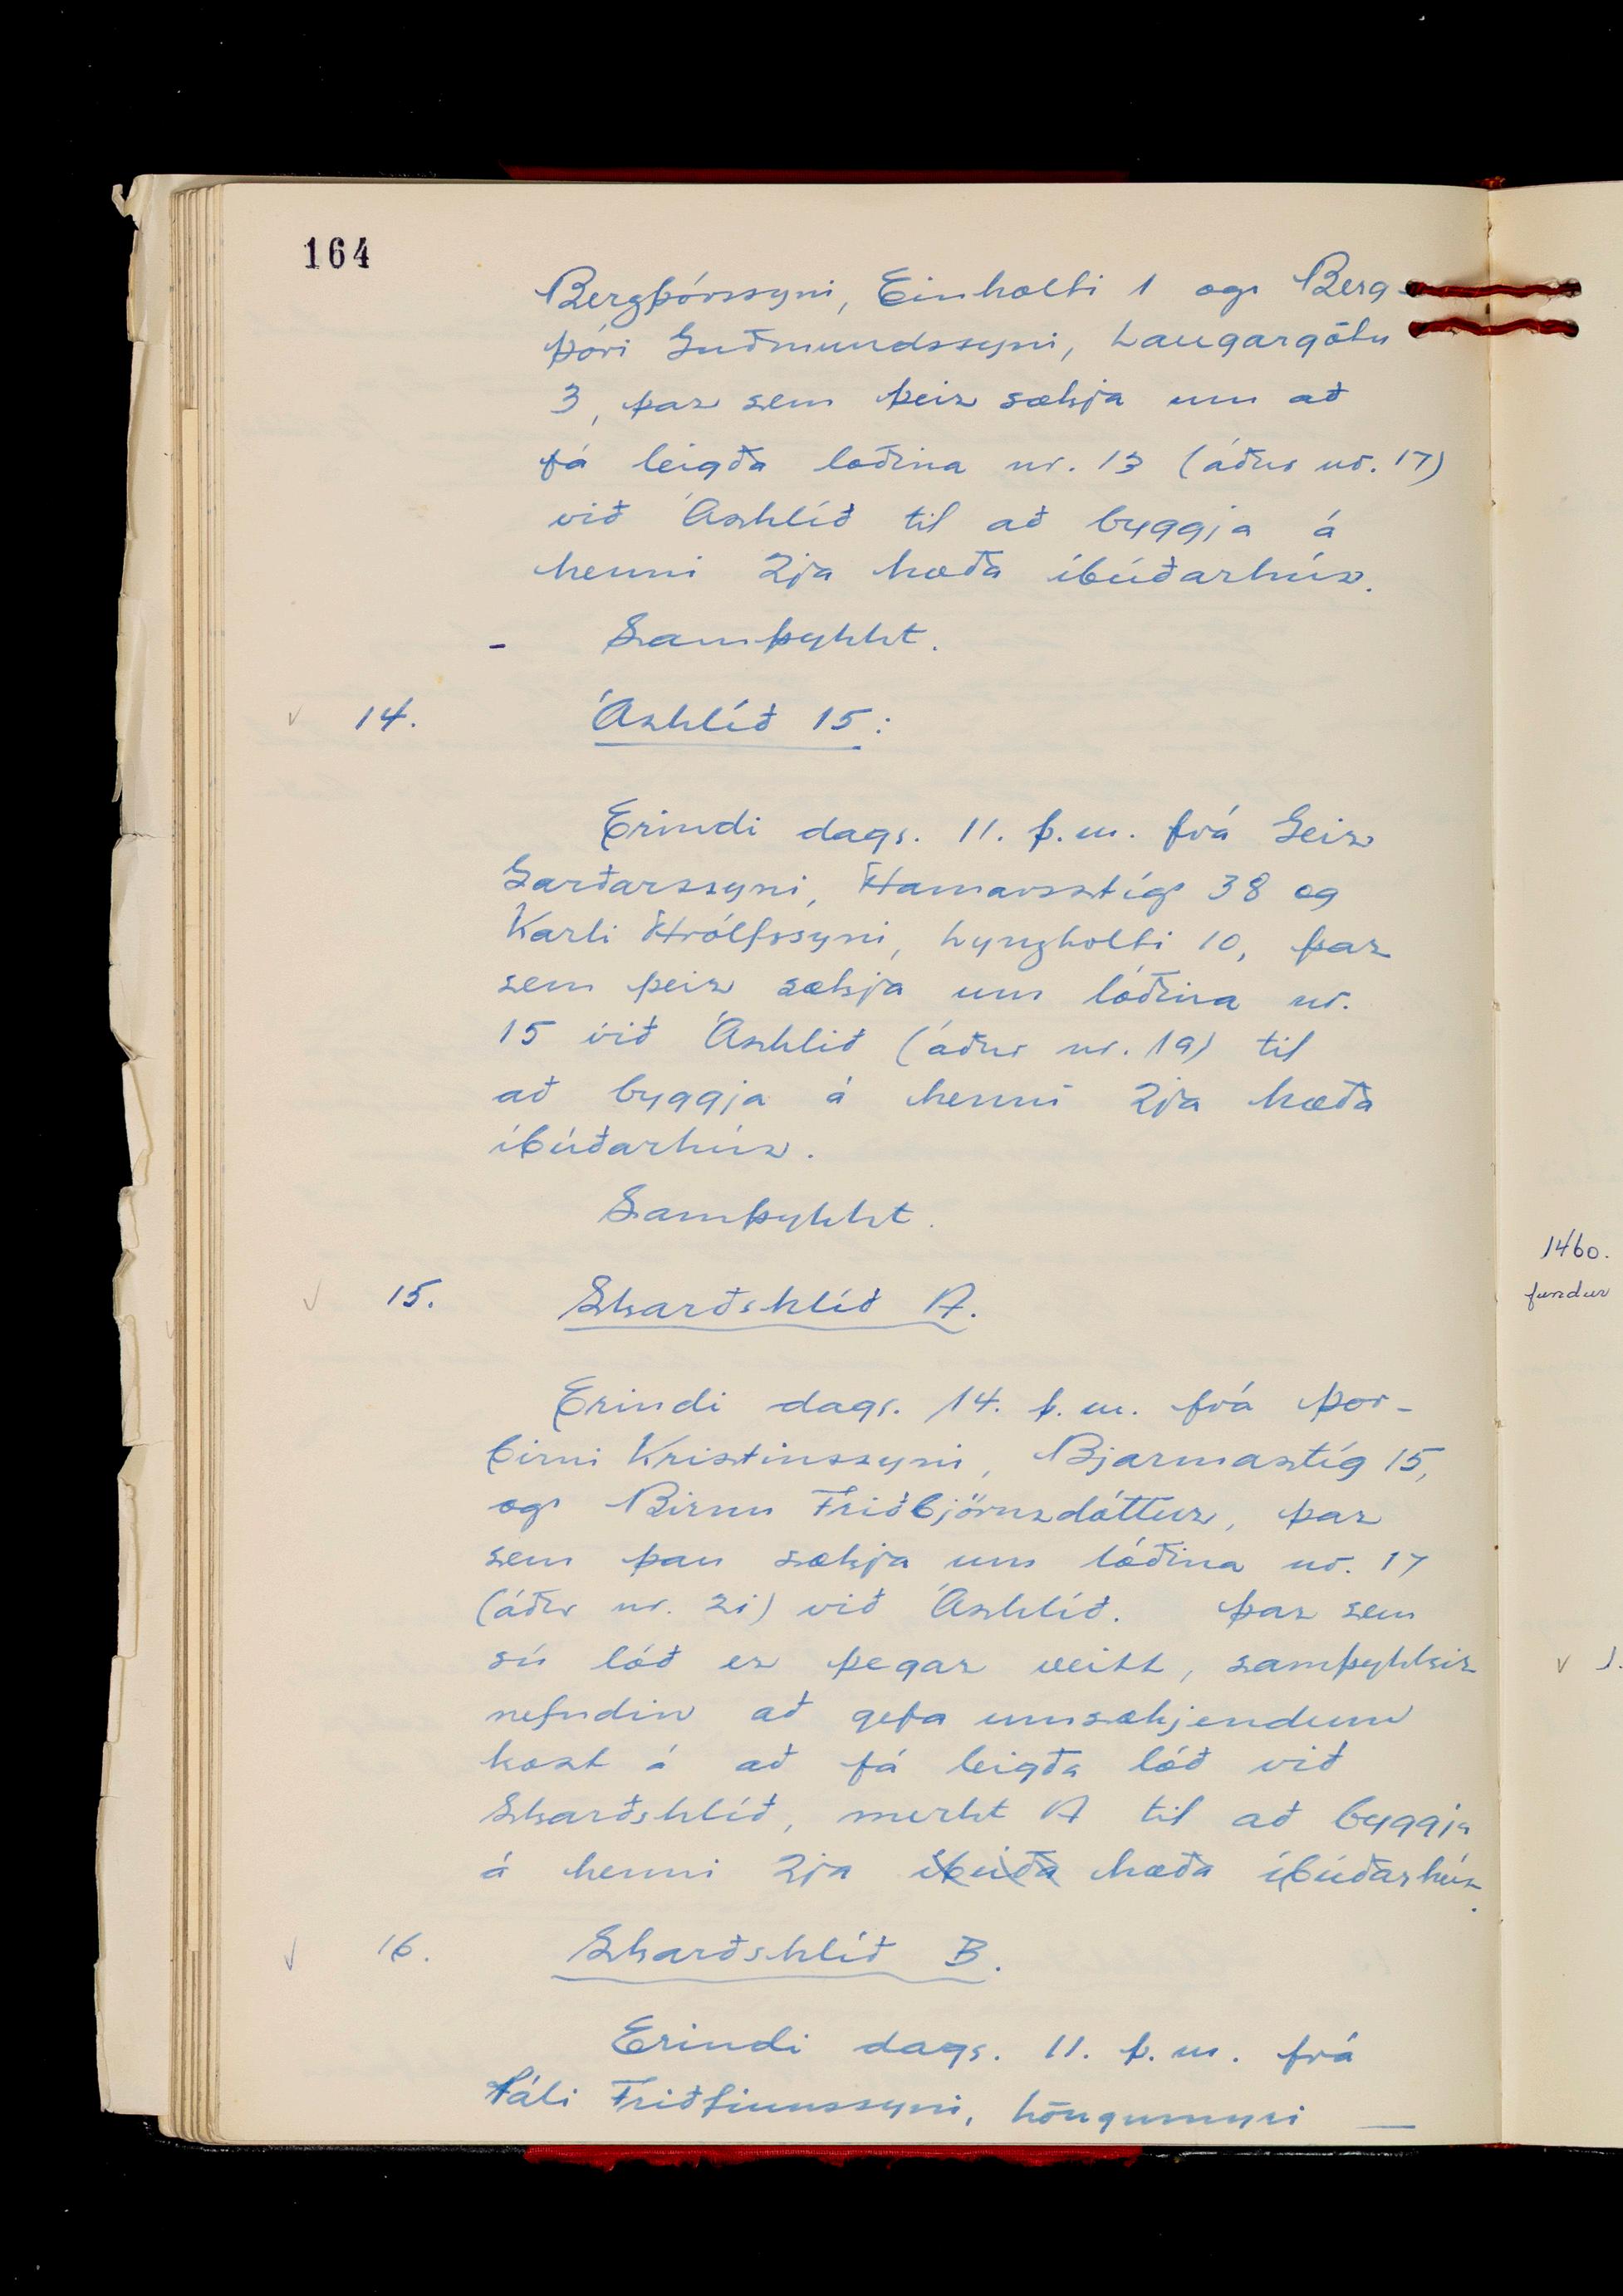 164
Bergþórssyni, Einholti 1 og Berg-
þóri Guðmundssyni, Laugargötu
3, þar sem þeir sækja um að
fá leigða lóðina nr. 13 (áður nr. 17)
við Áshlíð til að byggja á
henni 2ja hæða íbúðarhús.
- Samþykkt.
✓ 14. Áshlíð 15:
Erindi dags. 11. þ.m. frá Geir
Garðarssyni, Hamarsstíg 38 og
Karli Hrólfssyni, Lyngholti 10, þar
sem þeir sækja um lóðina nr.
15 við Áshlið (áður nr. 19) til
að byggja á henni 2ja hæða
íbúðarhús.
Samþykkt.
✓ 15. Skarðshlíð A.
Erindi dags. 14. þ.m. frá Þor-
birni Kristinssyni, Bjarmastíg 15,
og Birnu Friðbjörnsdóttur, þar
sem þau sækja um lóðina nr. 17
(áður nr. 21) við Áshlíð. Þar sem
sú lóð er þegar veitt, samþykkir
nefndin að gefa umsækjendum
kost á að fá leigða lóð við
Skarðshlíð, merkt A til að byggja
á henni 2ja íbúða hæða íbúðarhús.
✓ 16. Skarðshlíð B.
Erindi dags. 11. þ.m. frá
Páli Friðfinnssyni, Löngumýri —
1460.
fundur
✓ 1.